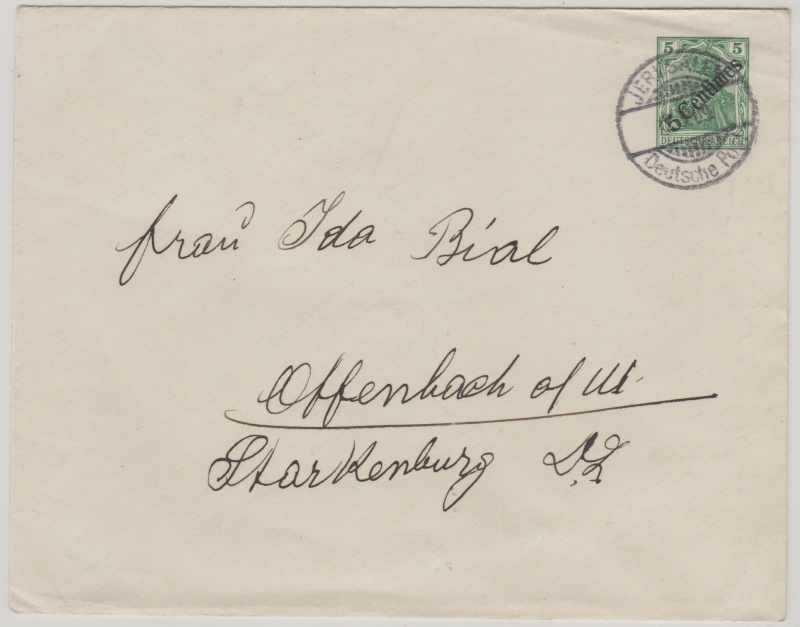 5 5
JERUSALEM
5 Centimes
DEUTSCHES REICH
Deutsche Post
Frau Ida Bial
Offenbach a/M.
Starkenburg